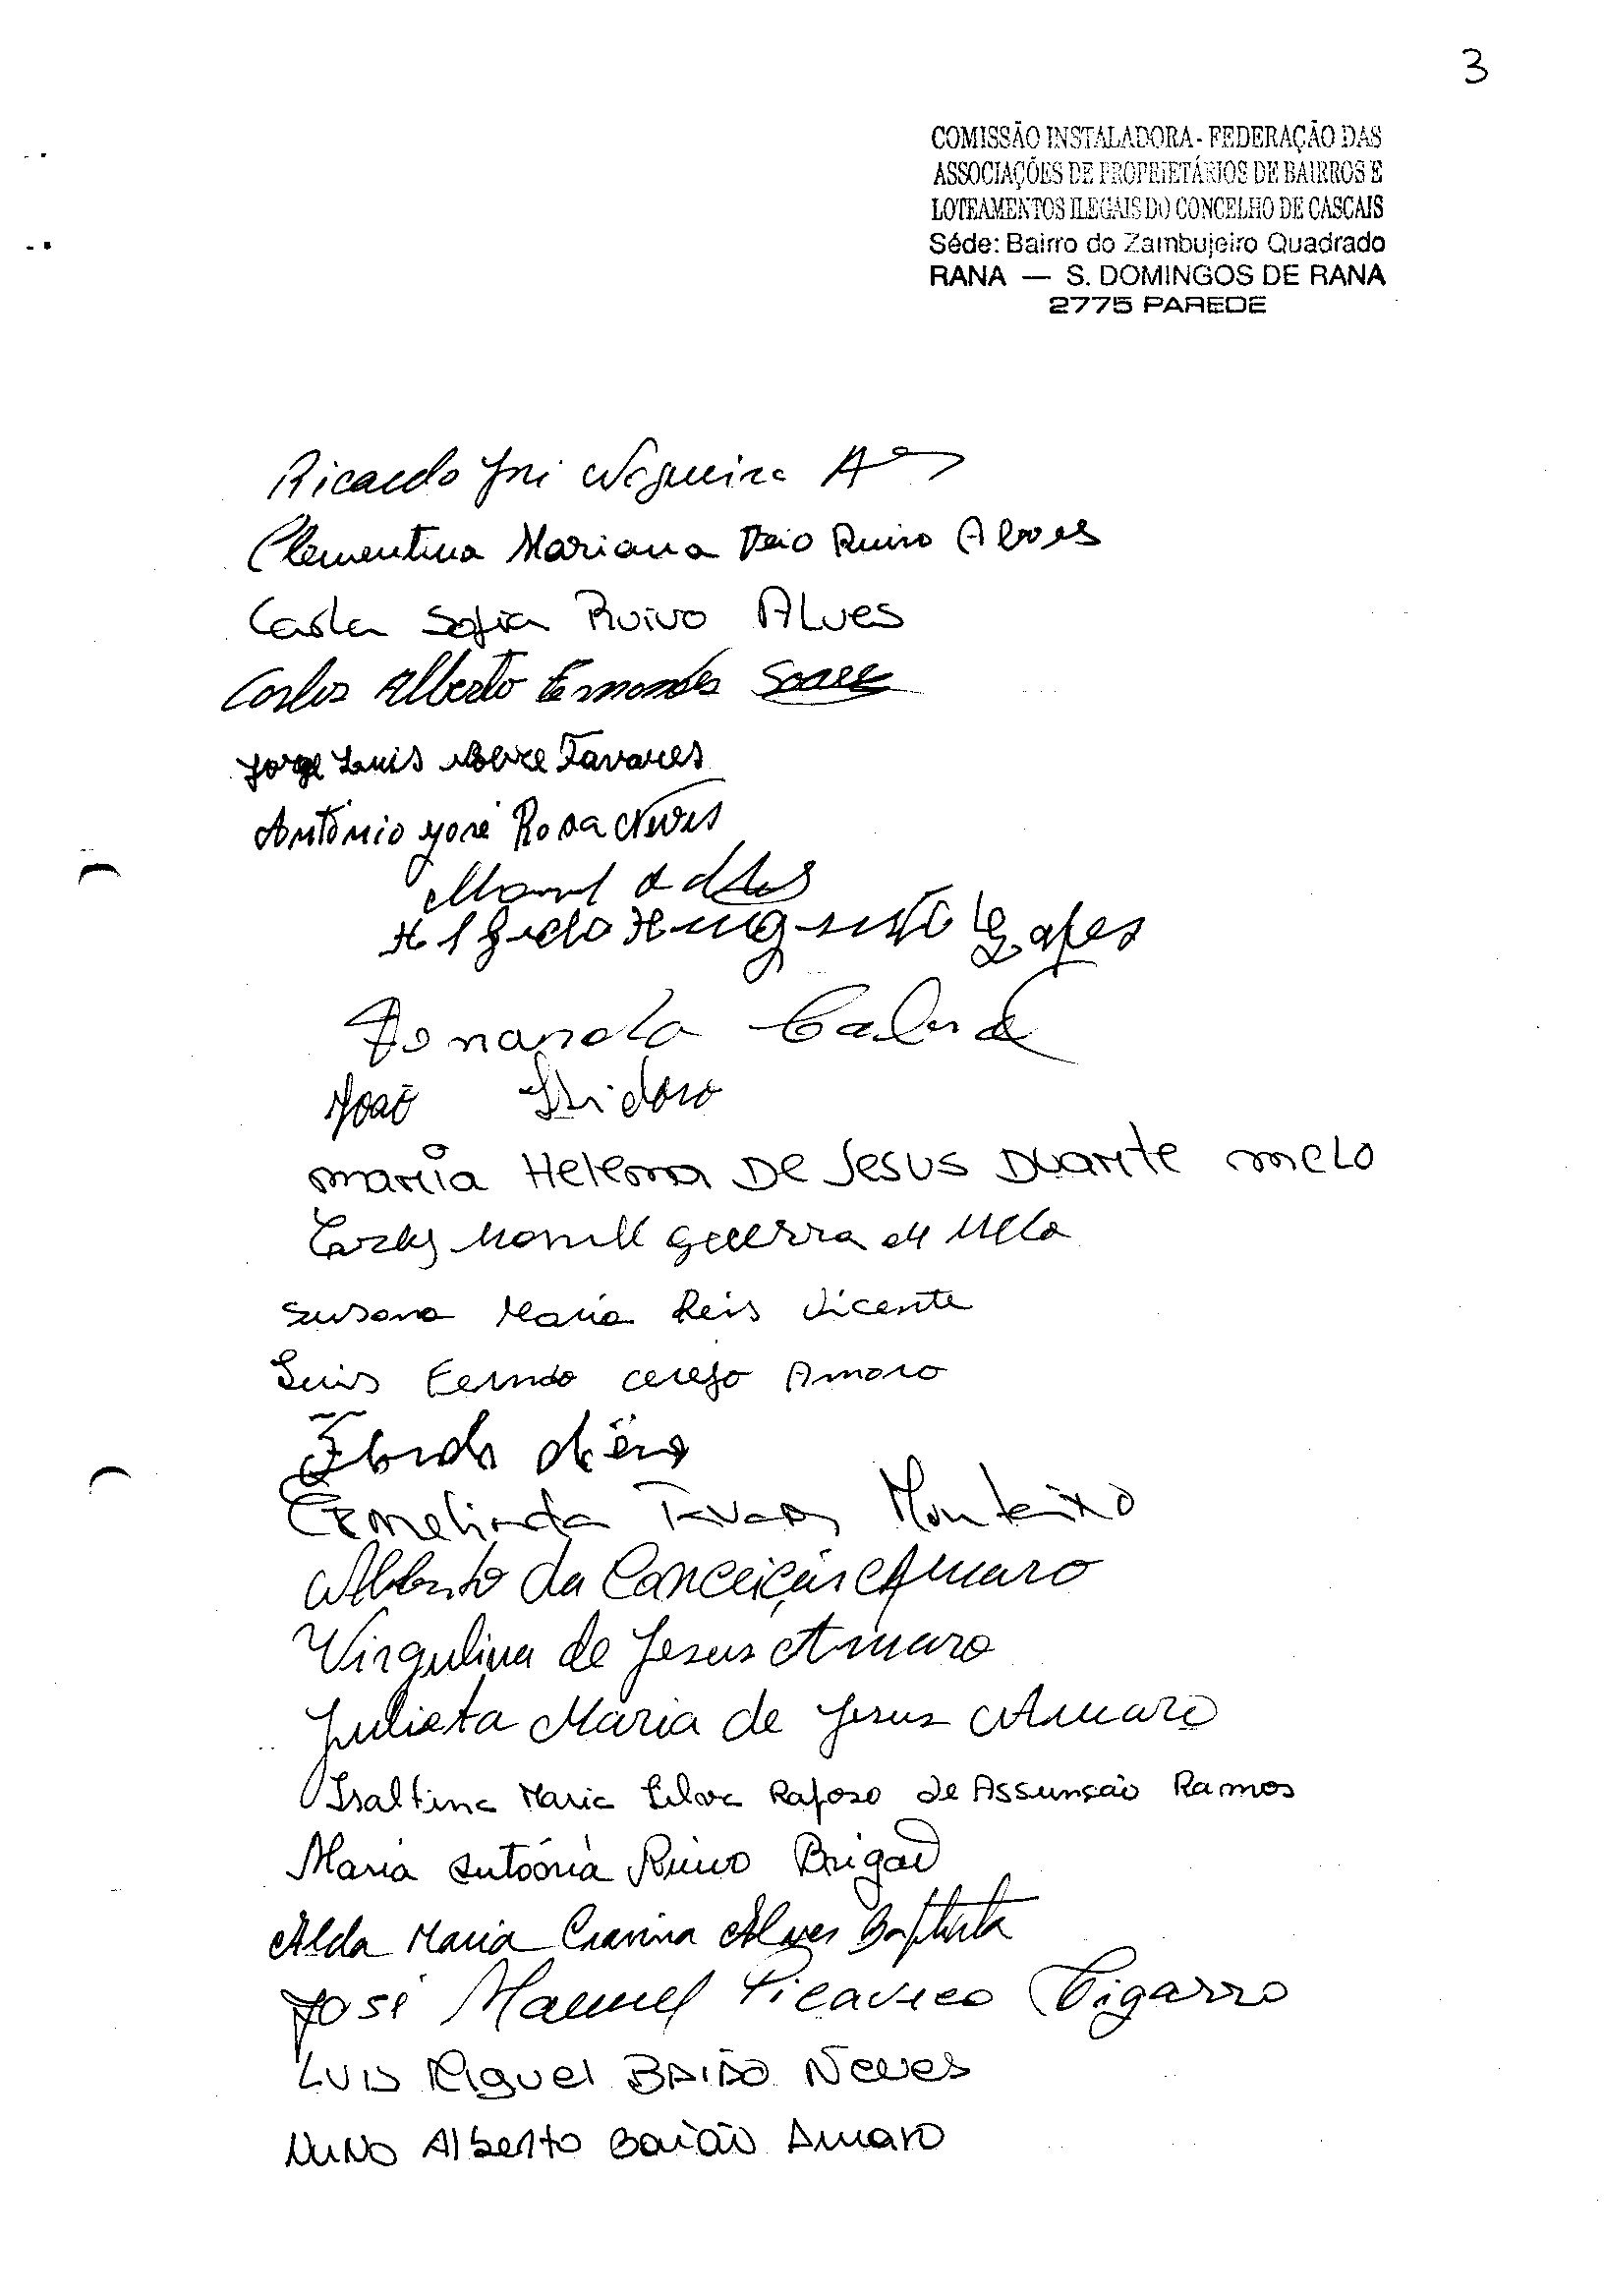 3
COMISSÃO INSTALADORA - FEDERAÇÃO DAS
ASSOCIAÇÕES DE PROPRIETÁRIOS DE BAIRROS E
LOTEAMENTOS ILEGAIS DO CONCELHO DE CASCAIS
Séde: Bairro do Zambujeiro Quadrado
RANA — S. DOMINGOS DE RANA
2775 PAREDE
Ricardo José Nogueira
Clementina Mariana Ruivo Alves
Carla Sofia Ruivo Alves
Carlos Alberto Fernandes Soares
Jorge Luis Nobre Tavares
António José Rosa Neves
Manuel
Alfredo Augusto Lopes
Fernanda Cabral
João Isidoro
Maria Helena De Jesus Duarte Melo
Carlos Manuel Guerra de Melo
Susana Maria Reis Vicente
Luis Fernando Cerejo Amaro
Ermelinda Tavares Monteiro
Alberto da Conceição Amaro
Virgulina de Jesus Amaro
Julieta Maria de Jesus Amaro
Isaltina Maria Silva Raposo de Assunção Ramos
Maria Antónia Ruivo
Alda Maria Alves Baptista
José Manuel Picanceo Cigarro
Luis Miguel BAIÃO Neves
NUNO Alberto Baião Amaro